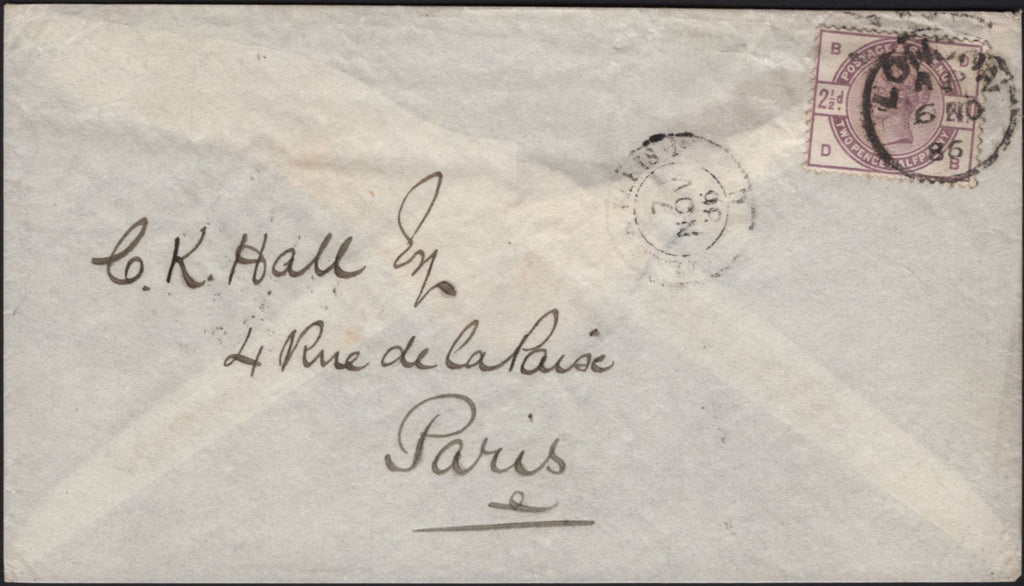 C. K. Hall Esq
4 Rue de la Paix
Paris
B
POSTAGE
2½d.
TWO PENCE HALFPENNY
D B
LONDON
6 NO
86
PARIS
7
NOV
86